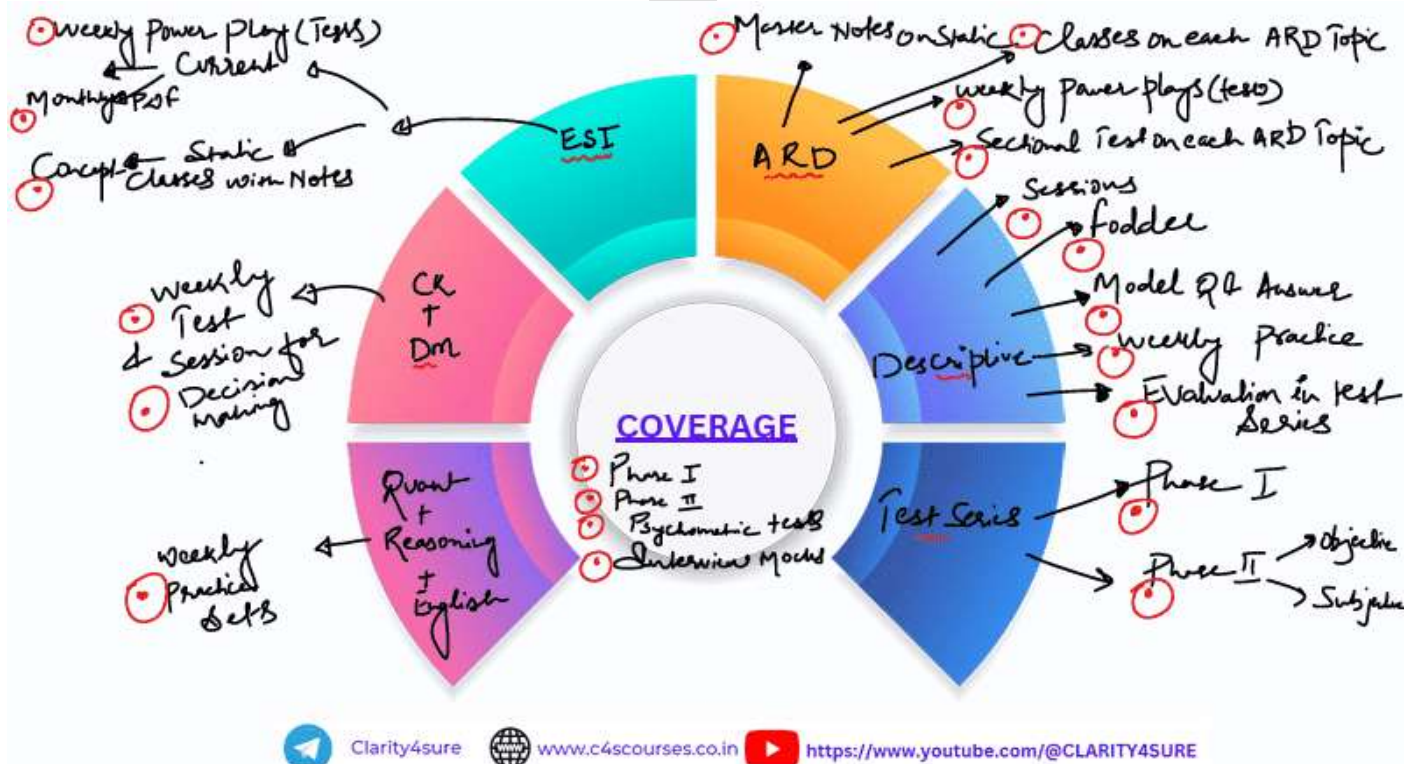 Weekly Power Play (Tests)
Current
Monthly PDF
Static
Concept Classes with Notes
ESI
Master Notes on Static
Classes on each ARD Topic
Weekly Power Plays (tests)
Sectional Test on each ARD Topic
ARD
Sessions
Fodder
Model Q& Answer
Weekly Practice
Evaluation in test
Series
Descriptive
CR
+
DM
Weekly
Test
&
Session for
Decision
Making
COVERAGE
Phase I
Phase II
Psychometric tests
Interview Mocks
Quant
+
Reasoning
+
English
Weekly
Practice
Sets
Test Series
Phase I
Phase II
Objective
Subjective
Clarity4sure
www.c4scourses.co.in
https://www.youtube.com/@CLARITY4SURE